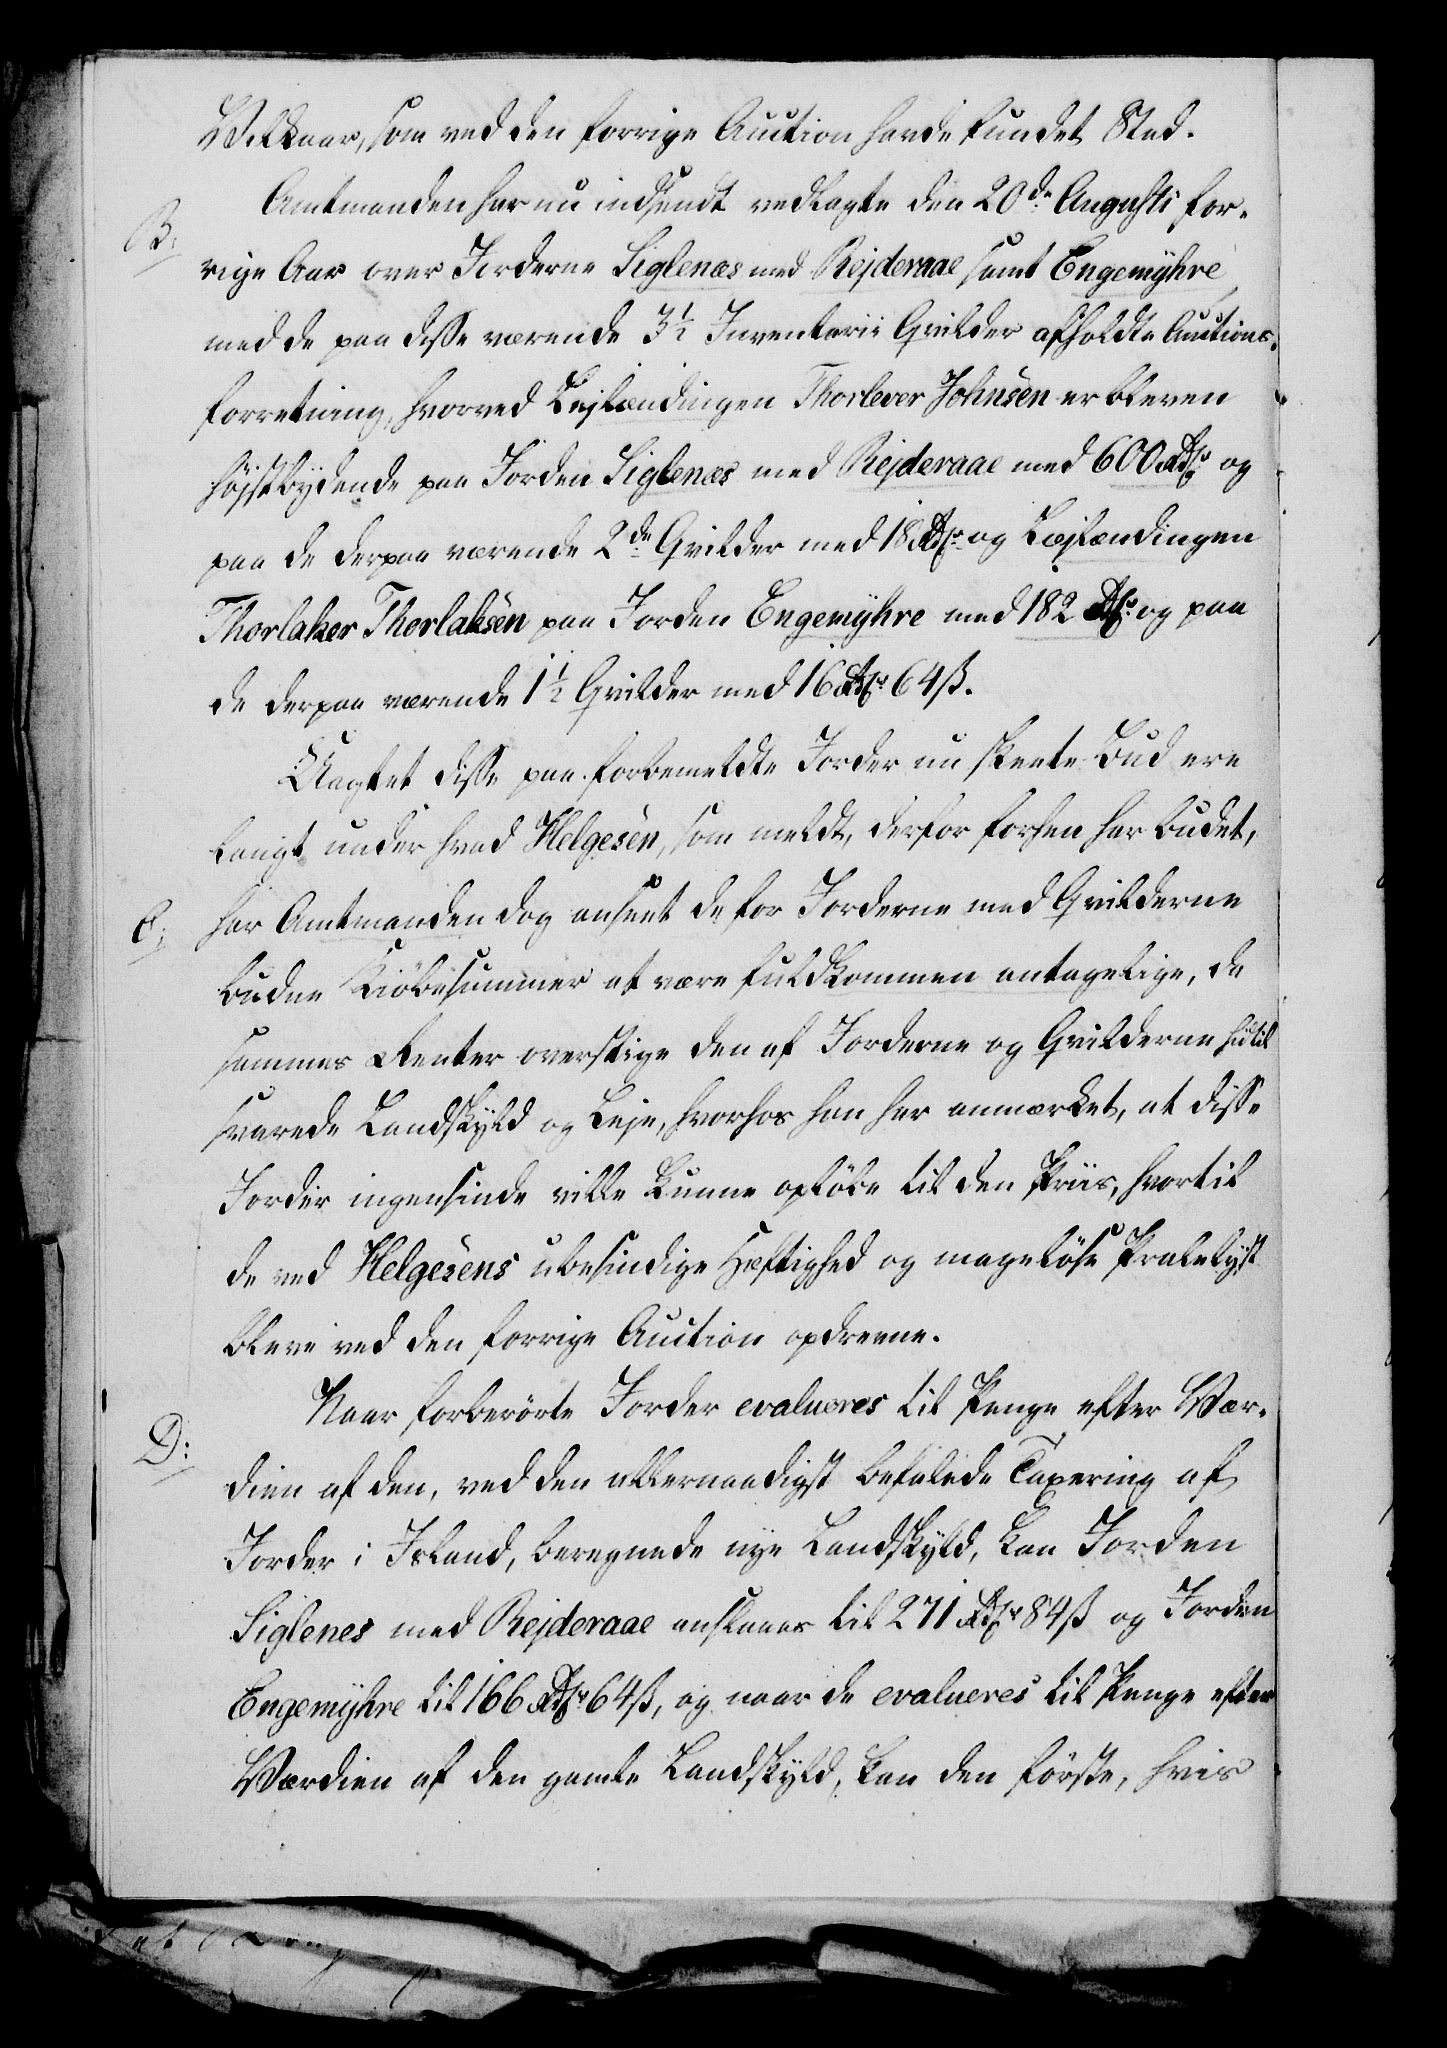 Vilkaar, som ved den forrige Auction havde fundet Sted.
Amtmanden har nu indsendt vedlagte den 20de Augusti for-
B:
rige Aar over Jorderne Siglenæs med Rejderaae samt Engemÿhre
med de paa disse værende 3½ Inventarii Qvilder afholdte Auctions-
forretning, hvorved Lejlændingen Thorlever Johnsen er bleven
højstbydende paa Jorden Siglenæs med Rejderaae med 600 Rdr og
paa de derpaa værende 2de Qvilder med 18 Rdr og Lejlændingen
Thorlaker Thorlaksen paa Jorden Engemÿhre med 182 Rdr og paa
de derpaa værende 1½ Qvilder med 16 Rdr 64 ß.
Uagtet disse paa forbemeldte Jorder nu skeete Bud ere
langt under hvad Helgesen, som meldt, derfor forhen har budet,
C:
har Amtmanden dog anseet de for Jorderne med Qvilderne
budne Kiöbesummer at være fuldkommen antagelige, da
sammes Renter overstige den af Jorderne og Qvilderne hidtil
svarede Landskÿld og Leje, hvorhos han har anmærket, at disse
Jorder ingensinde ville kunne opløbe til den Priis, hvortil
de ved Helgesens ubesindige Hæftighed og mageløse Pralelyst
bleve ved den forrige Auction opdrevne.
Naar forberörte Jorder evalueres til Penge efter Vær-
D:
dien af den, ved den allernaadigst befalede Taxering af
Jorder i Island, beregnede nye Landskÿld, kan Jorden
Siglenes med Rejderaae anslaaes til 271 Rdr 84 ß og Jorden
Engemÿhre til 166 Rdr 64 ß, og naar de evalueres til Penge efter
Værdien af den gamle Landskÿld, kan den förste, hvis